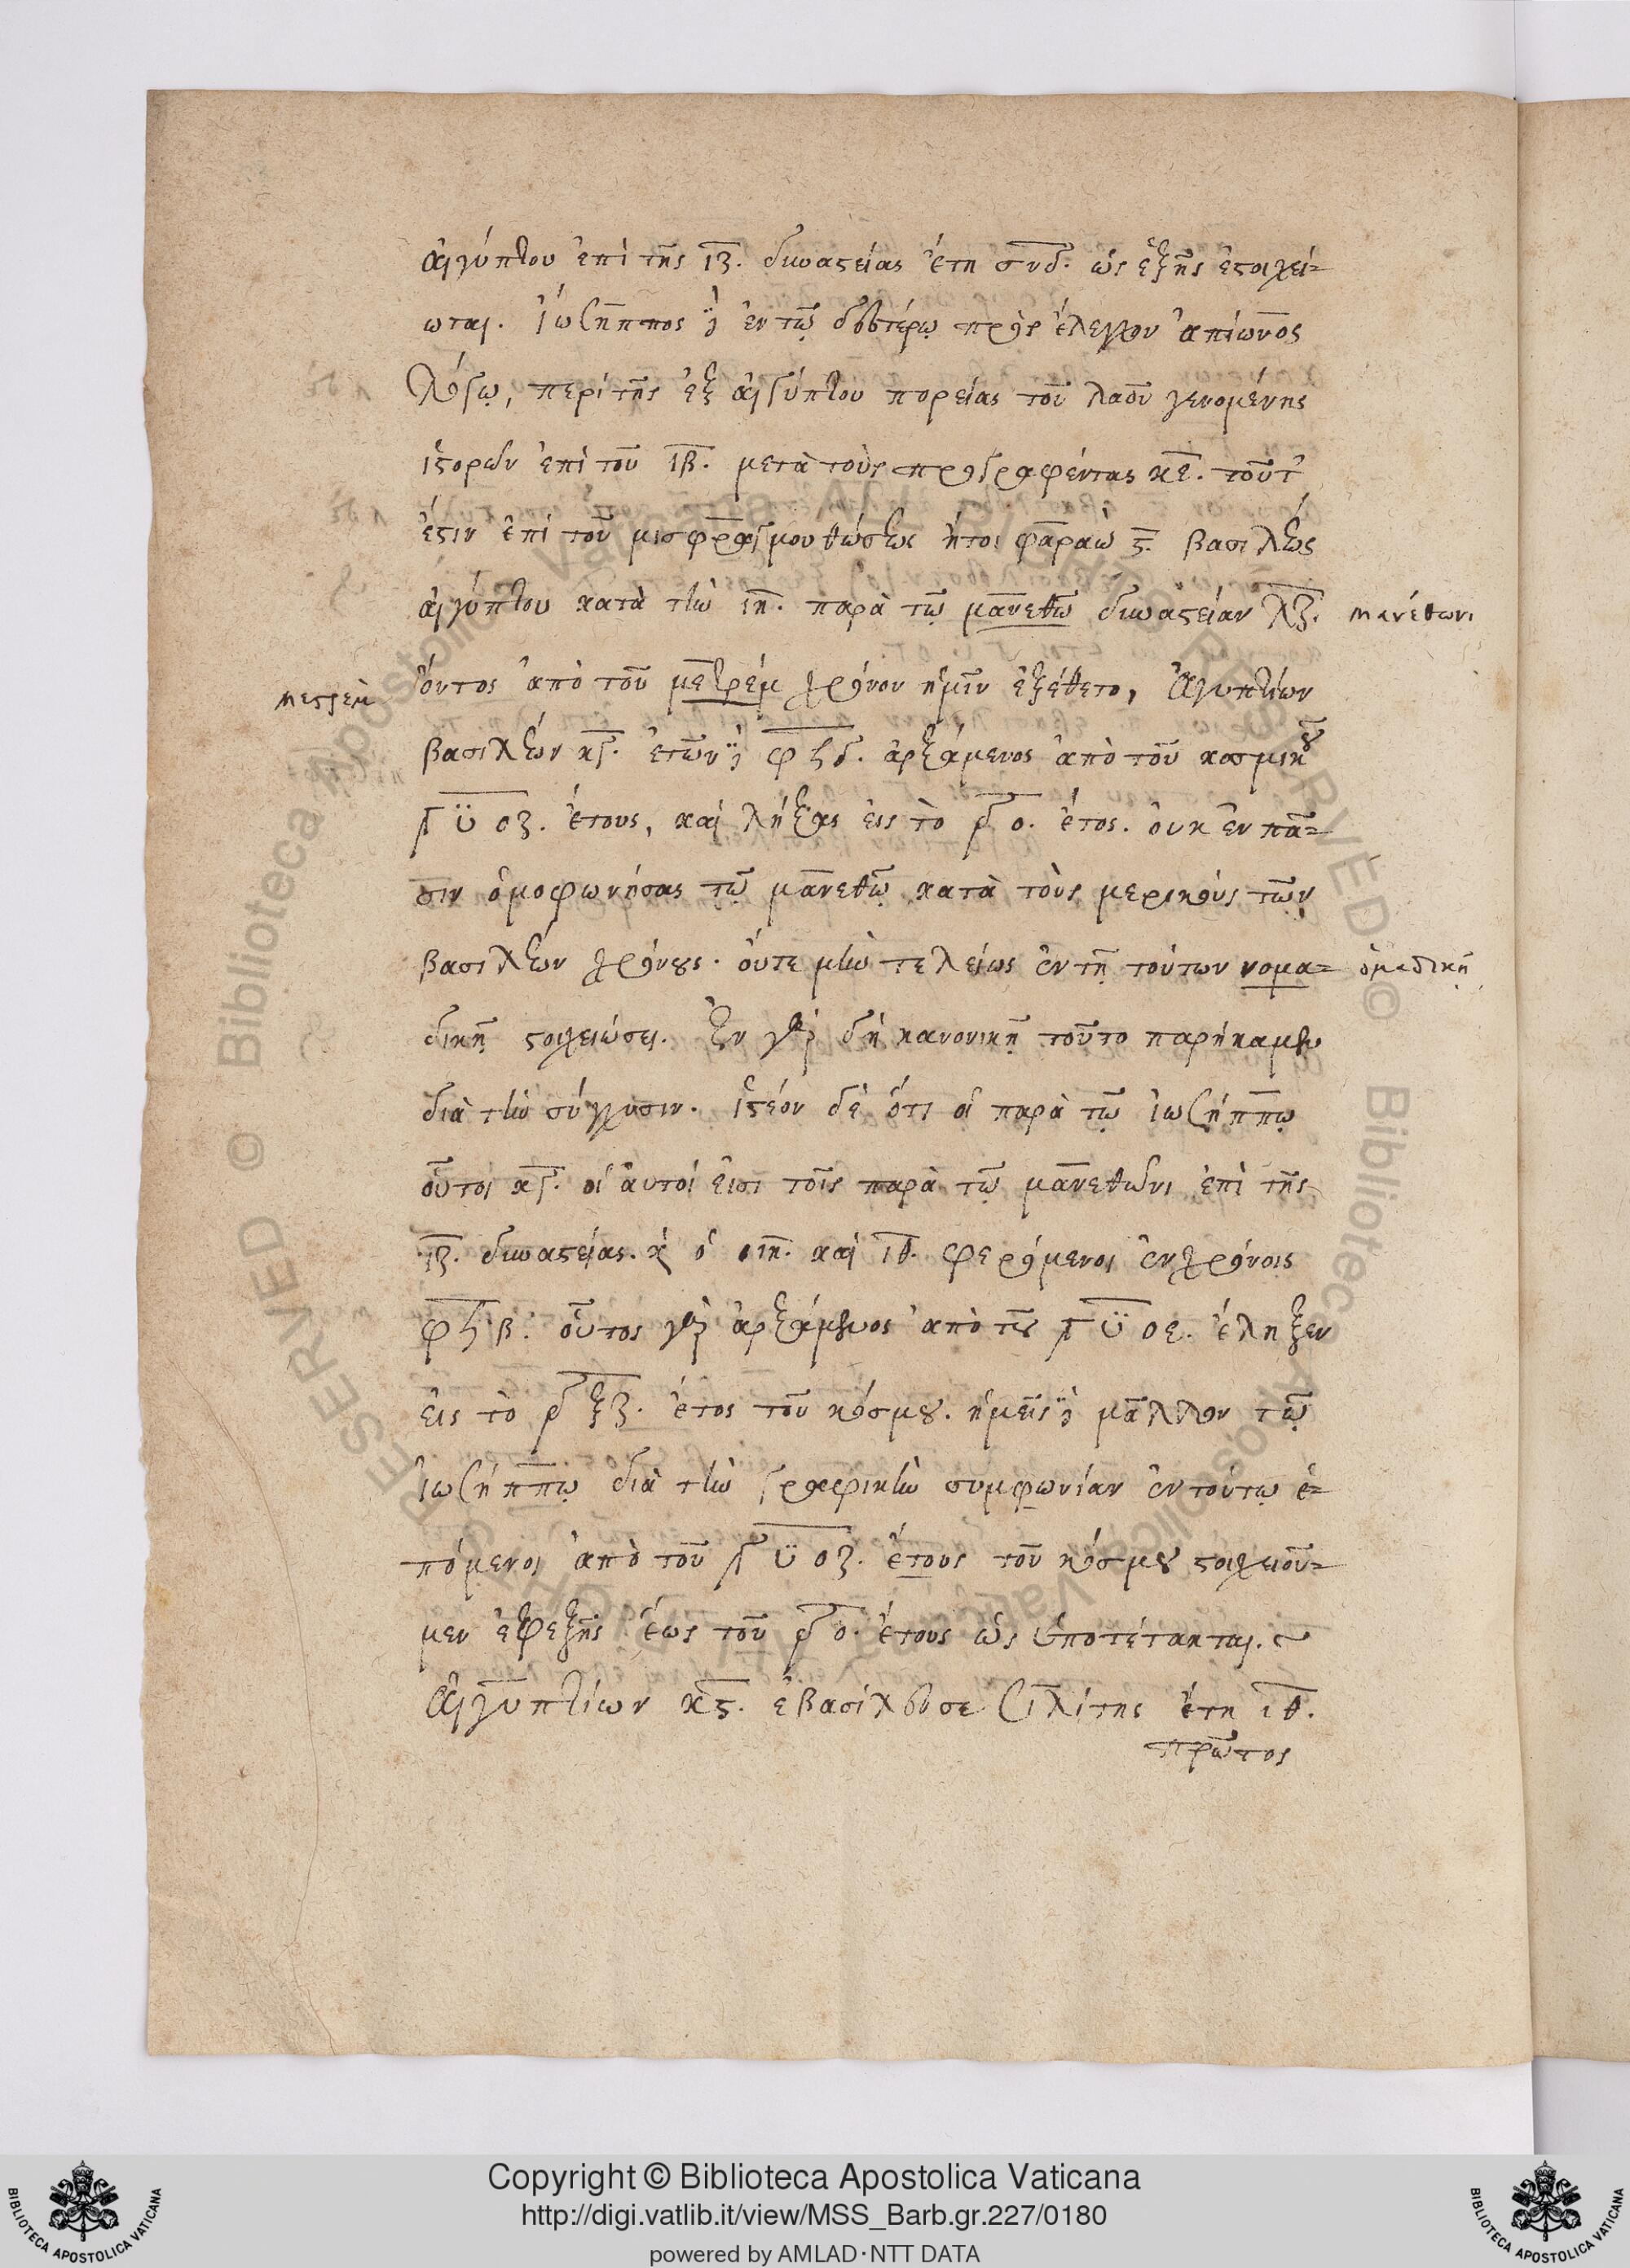 αἰγύπτου ἐπὶ τῆς ιζ. δυναστείας ἔτη σνδ. ὡς ἑξῆς ἐστοιχεί-
ωται. ἰώσηππος δὲ ἐν τῷ δευτέρῳ πρὸς ἔλεγχον ἀπίωνος
λόγῳ, περὶ τῆς ἐξ αἰγύπτου πορείας τοῦ λαοῦ γενομένης
ἱστορῶν ἐπὶ τοῦ ιβ. μετὰ τοὺς προγραφέντας κε. τοῦτ'
ἔστιν ἐπὶ τοῦ μισφραγμουθώσεως ἤτοι φαραὼ ς. βασιλέως
αἰγύπτου κατὰ τὴν ιη. παρὰ τῷ μανεθῶ δυναστείαν λζ. μανέθωνι
μεστρεὶμ ὄντος ἀπὸ τοῦ μετρέμ χρόνον ἡμῖν ἐξέθετο, Αἰγυπτίων
βασιλέων κς. ἐτῶν δὲ φϟδ. ἀρξάμενος ἀπὸ τοῦ κοσμικοῦ
͵βυοζ. ἔτους, καὶ λήξας εἰς τὸ ͵γο. ἔτος. οὐκ ἐν πᾶ-
σιν ὁμοφωνήσας τῷ μανεθῷ κατὰ τοὺς μερικοὺς τῶν
βασιλέων χρόνους. οὔτε μὴν τελείως ἐν τῇ τούτων νομα- ὀμαδικῇ
δικῇ στοιχειώσει. Ἐν γὰρ δὴ κανονικῇ τοῦτο παρήκαμεν
διὰ τὴν σύγχυσιν. ἰστέον δὲ ὅτι οἱ παρὰ τῷ ἰωσήππῳ
οὗτοι κς. οἱ αὐτοί εἰσι τοῖς παρὰ τῷ μανεθῶνι ἐπὶ τῆς
ιζ. δυναστείας. καὶ ὁ ιη. καὶ ιθ. φερόμενοι ἐν χρόνοις
φϟβ. οὗτος γὰρ ἀρξάμενος ἀπὸ τοῦ ͵βυοε. ἔληξεν
εἰς τὸ ͵γξζ. ἔτος τοῦ κόσμου. ἡμεῖς δὲ μᾶλλον τῷ
ἰωσήππῳ διὰ τὴν γραφικὴν συμφωνίαν ἐν τούτῳ ἑ-
πόμενοι ἀπὸ τοῦ ͵βυοζ. ἔτους τοῦ κόσμου στοιχειοῦ-
μεν ἐφεξῆς ἕως τοῦ ͵γο. ἔτους ὡς ὑποτέτακται.
Αἰγυπτίων κς. ἐβασίλευσε Σιλίτης ἔτη ιθ.
πρῶτος
Copyright © Biblioteca Apostolica Vaticana
http://digi.vatlib.it/view/MSS_Barb.gr.227/0180
powered by AMLAD·NTT DATA
BIBLIOTECA APOSTOLICA VATICANA
BIBLIOTECA APOSTOLICA VATICANA